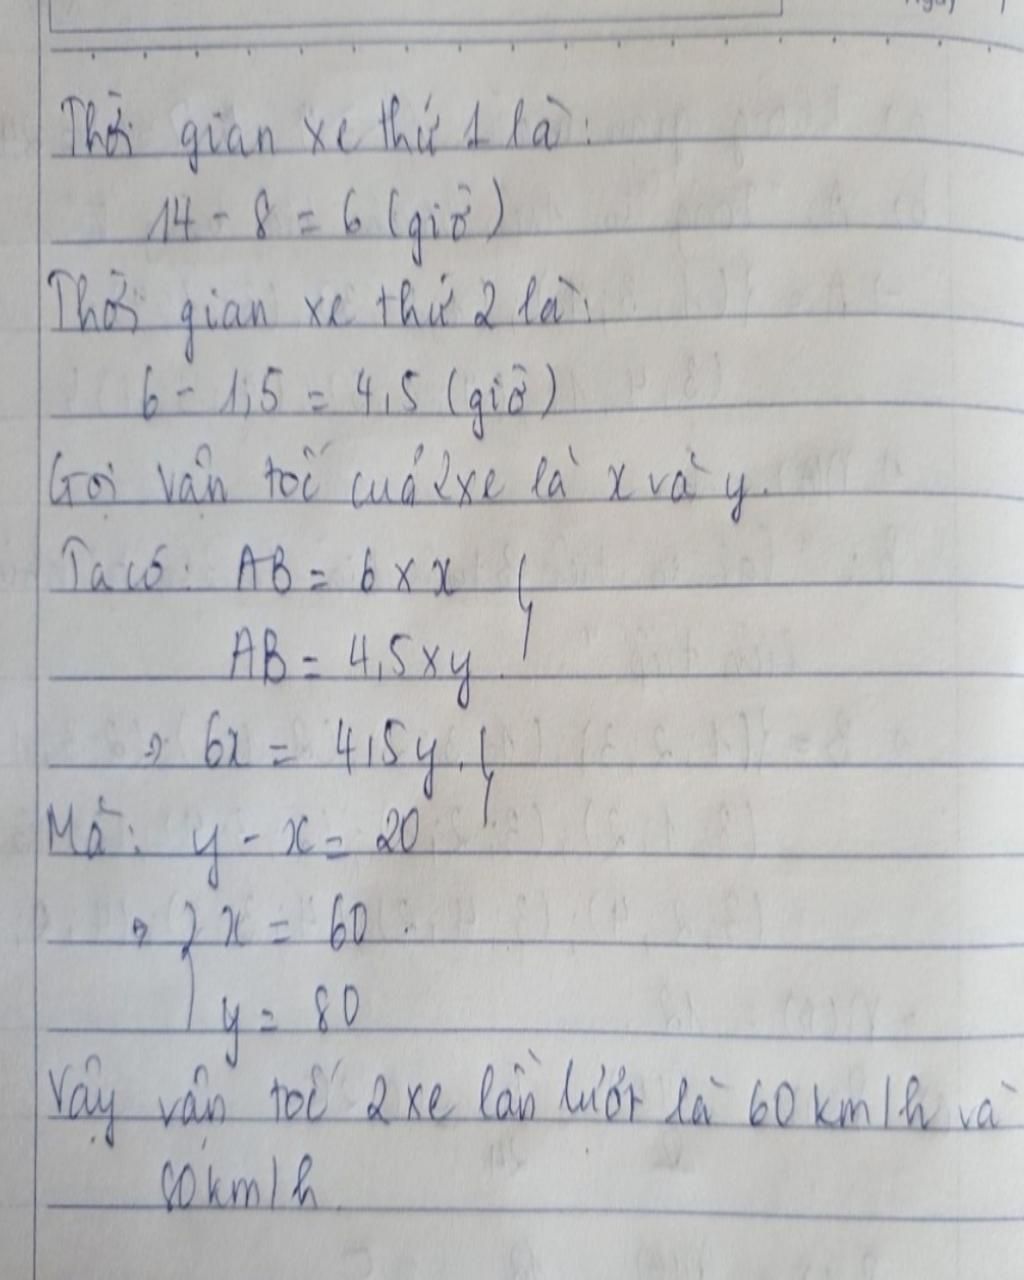 Thời gian xe thứ 1 là:
14 - 8 = 6 (giờ)
Thời gian xe thứ 2 là:
6 - 1,5 = 4,5 (giờ)
Gọi vận tốc của 2 xe là x và y.
Ta có: AB = 6 x x }
AB = 4,5 x y
⇒ 6x = 4,5y. }
Mà: y - x = 20
⇒ { x = 60
y = 80
Vậy vận tốc 2 xe lần lượt là 60 km/h và
80 km/h.